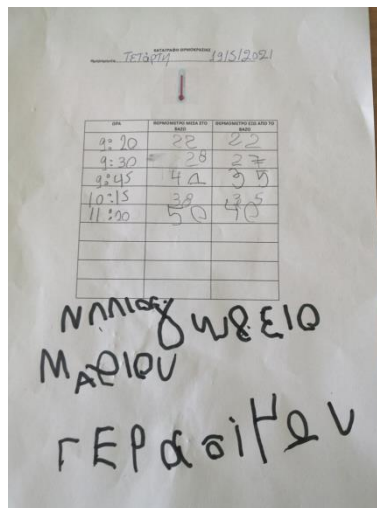 ΚΑΤΑΓΡΑΦΗ ΘΕΡΜΟΚΡΑΣΙΑΣ
Ημερομηνία: ΤΕΤΑΡΤΗ 19/5/2021
ΩΡΑ ΘΕΡΜΟΜΕΤΡΟ ΜΕΣΑ ΣΤΟ ΒΑΖΟ ΘΕΡΜΟΜΕΤΡΟ ΕΞΩ ΑΠΟ ΤΟ ΒΑΖΟ
9:20 22 22
9:30 28 27
9:45 40 35
10:15 38 35
11:20 50 40
ΝΗΠΙΑΓΩΓΕΙΟ
ΜΑΡΙΟΥ
ΓΕΡΑΣΙΜΟΥ